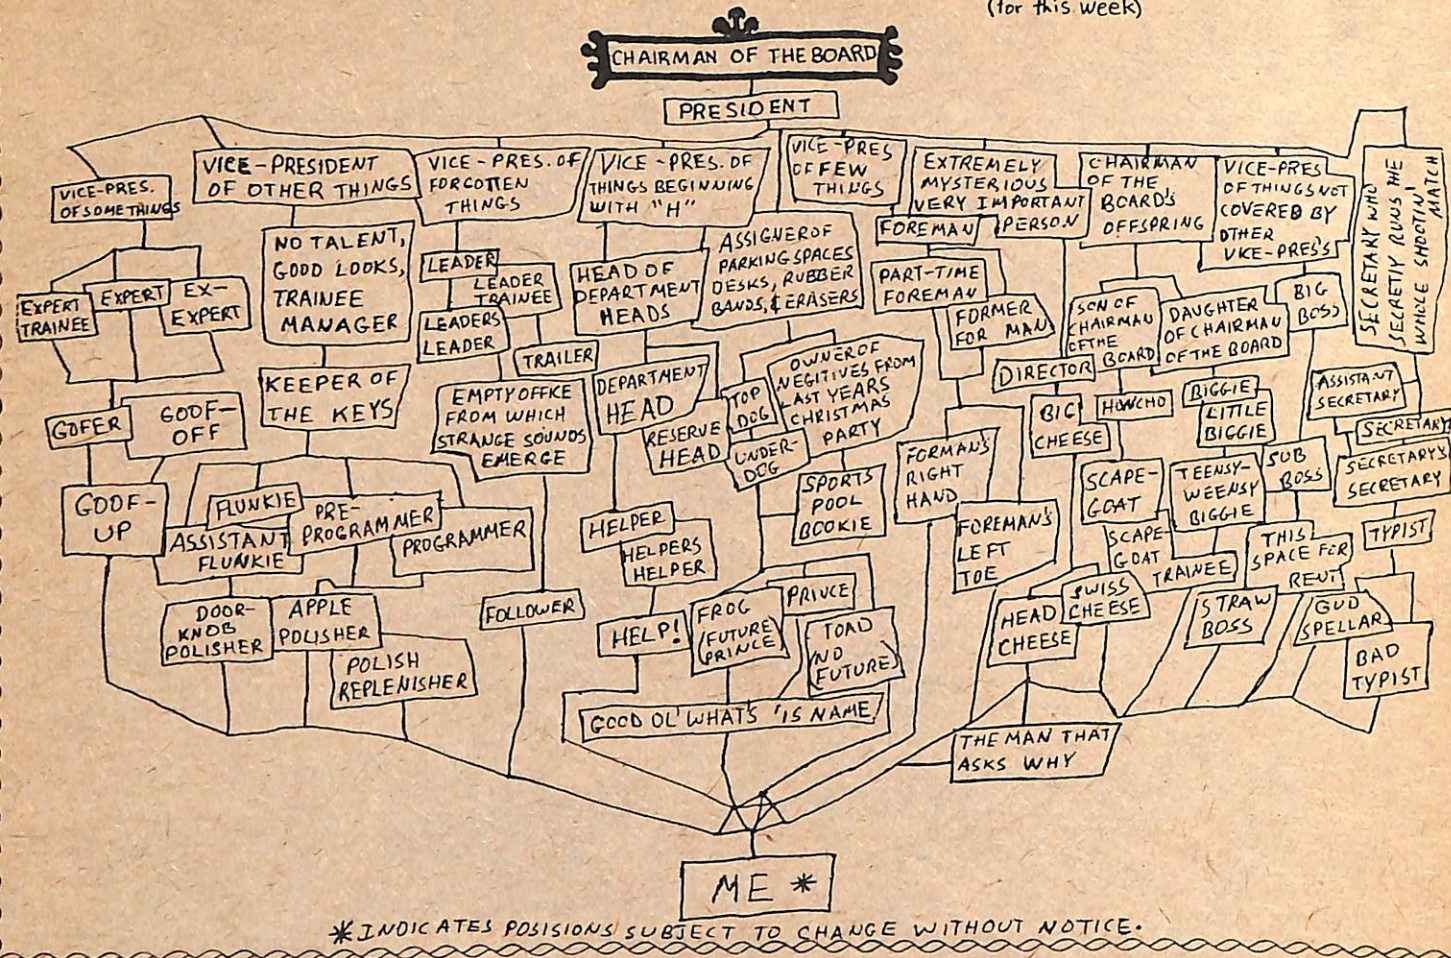 (for this week)
CHAIRMAN OF THE BOARD
PRESIDENT
VICE-PRES.
OF SOME THINGS
VICE-PRESIDENT
OF OTHER THINGS
VICE-PRES. OF
FORGOTTEN
THINGS
VICE-PRES. OF
THINGS BEGINNING
WITH "H"
VICE-PRES
OF FEW
THINGS
EXTREMELY
MYSTERIOUS
VERY IMPORTANT
PERSON
CHAIRMAN
OF THE
BOARD'S
OFFSPRING
VICE-PRES
OF THINGS NOT
COVERED BY
OTHER
VICE-PRES'S
SECRETARY WHO
SECRETLY RUNS THE
WHOLE SHOOTIN'
MATCH
EXPERT
TRAINEE
EXPERT
EX-
EXPERT
NO TALENT,
GOOD LOOKS,
TRAINEE
MANAGER
LEADER
LEADER
TRAINEE
LEADERS
LEADER
TRAILER
HEAD OF
DEPARTMENT
HEADS
ASSIGNER OF
PARKING SPACES
DESKS, RUBBER
BANDS, & ERASERS
FOREMAN
PART-TIME
FOREMAN
FORMER
FOR MAN
SON OF
CHAIRMAN
OF THE
BOARD
DAUGHTER
OF CHAIRMAN
OF THE BOARD
BIG
BOSS
GOFER
GOOF-
OFF
KEEPER OF
THE KEYS
EMPTY OFFICE
FROM WHICH
STRANGE SOUNDS
EMERGE
DEPARTMENT
HEAD
RESERVE
HEAD
TOP
DOG
UNDER-
DOG
OWNER OF
NEGITIVES FROM
LAST YEARS
CHRISTMAS
PARTY
DIRECTOR
BIG
CHEESE
HONCHO
BIGGIE
LITTLE
BIGGIE
ASSISTANT
SECRETARY
SECRETARY
SECRETARY'S
SECRETARY
GOOF-
UP
FLUNKIE
ASSISTANT
FLUNKIE
PRE-
PROGRAMMER
PROGRAMMER
HELPER
HELPERS
HELPER
SPORTS
POOL
BOOKIE
FORMAN'S
RIGHT
HAND
FOREMAN'S
LEFT
TOE
SCAPE-
GOAT
SCAPE-
GOAT
TRAINEE
TEENSY-
WEENSY
BIGGIE
SUB
BOSS
THIS
SPACE FOR
RENT
TYPIST
DOOR-
KNOB
POLISHER
APPLE
POLISHER
POLISH
REPLENISHER
FOLLOWER
HELP!
FROG
(FUTURE
PRINCE)
PRINCE
TOAD
(NO
FUTURE)
HEAD
CHEESE
SWISS
CHEESE
STRAW
BOSS
GUD
SPELLAR
BAD
TYPIST
GOOD OL' WHAT'S 'IS NAME
THE MAN THAT
ASKS WHY
ME *
*INDICATES POSISIONS SUBJECT TO CHANGE WITHOUT NOTICE.